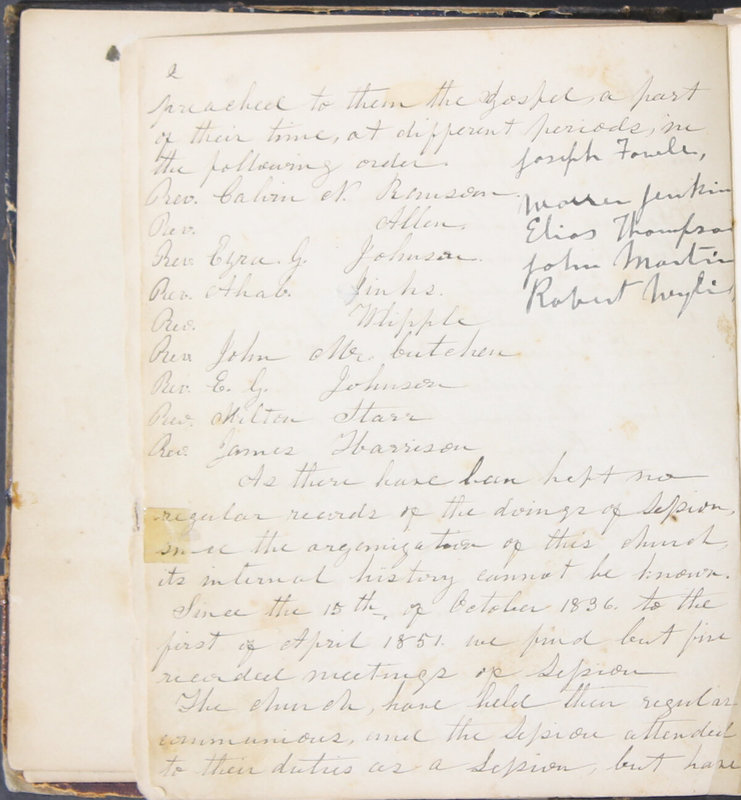 2
preached to them the Gospel, a part
of their time, at different periods, in
the following order.
Joseph Fowler,
Rev. Calvin N. Ransom.
Warren Jenkins
Rev. Allen.
Elias Thompson
Rev. Ezra. G. Johnson.
John Martin
Rev. Ahab. Jinks.
Robert Wylie
Rev. Whipple
Rev. John Mc. Cutchen
Rev. E. G. Johnson
Rev. Milton Starr
Rev. James Harrison
As there have been kept no
regular records of the doings of Session,
since the organization of this church,
its internal history cannot be known.
Since the 15th, of October 1836. to the
first of April 1851. we find but five
recorded meetings of Session
The church, have held their regular
communions, and the Session attended
to their duties as a Session, but have